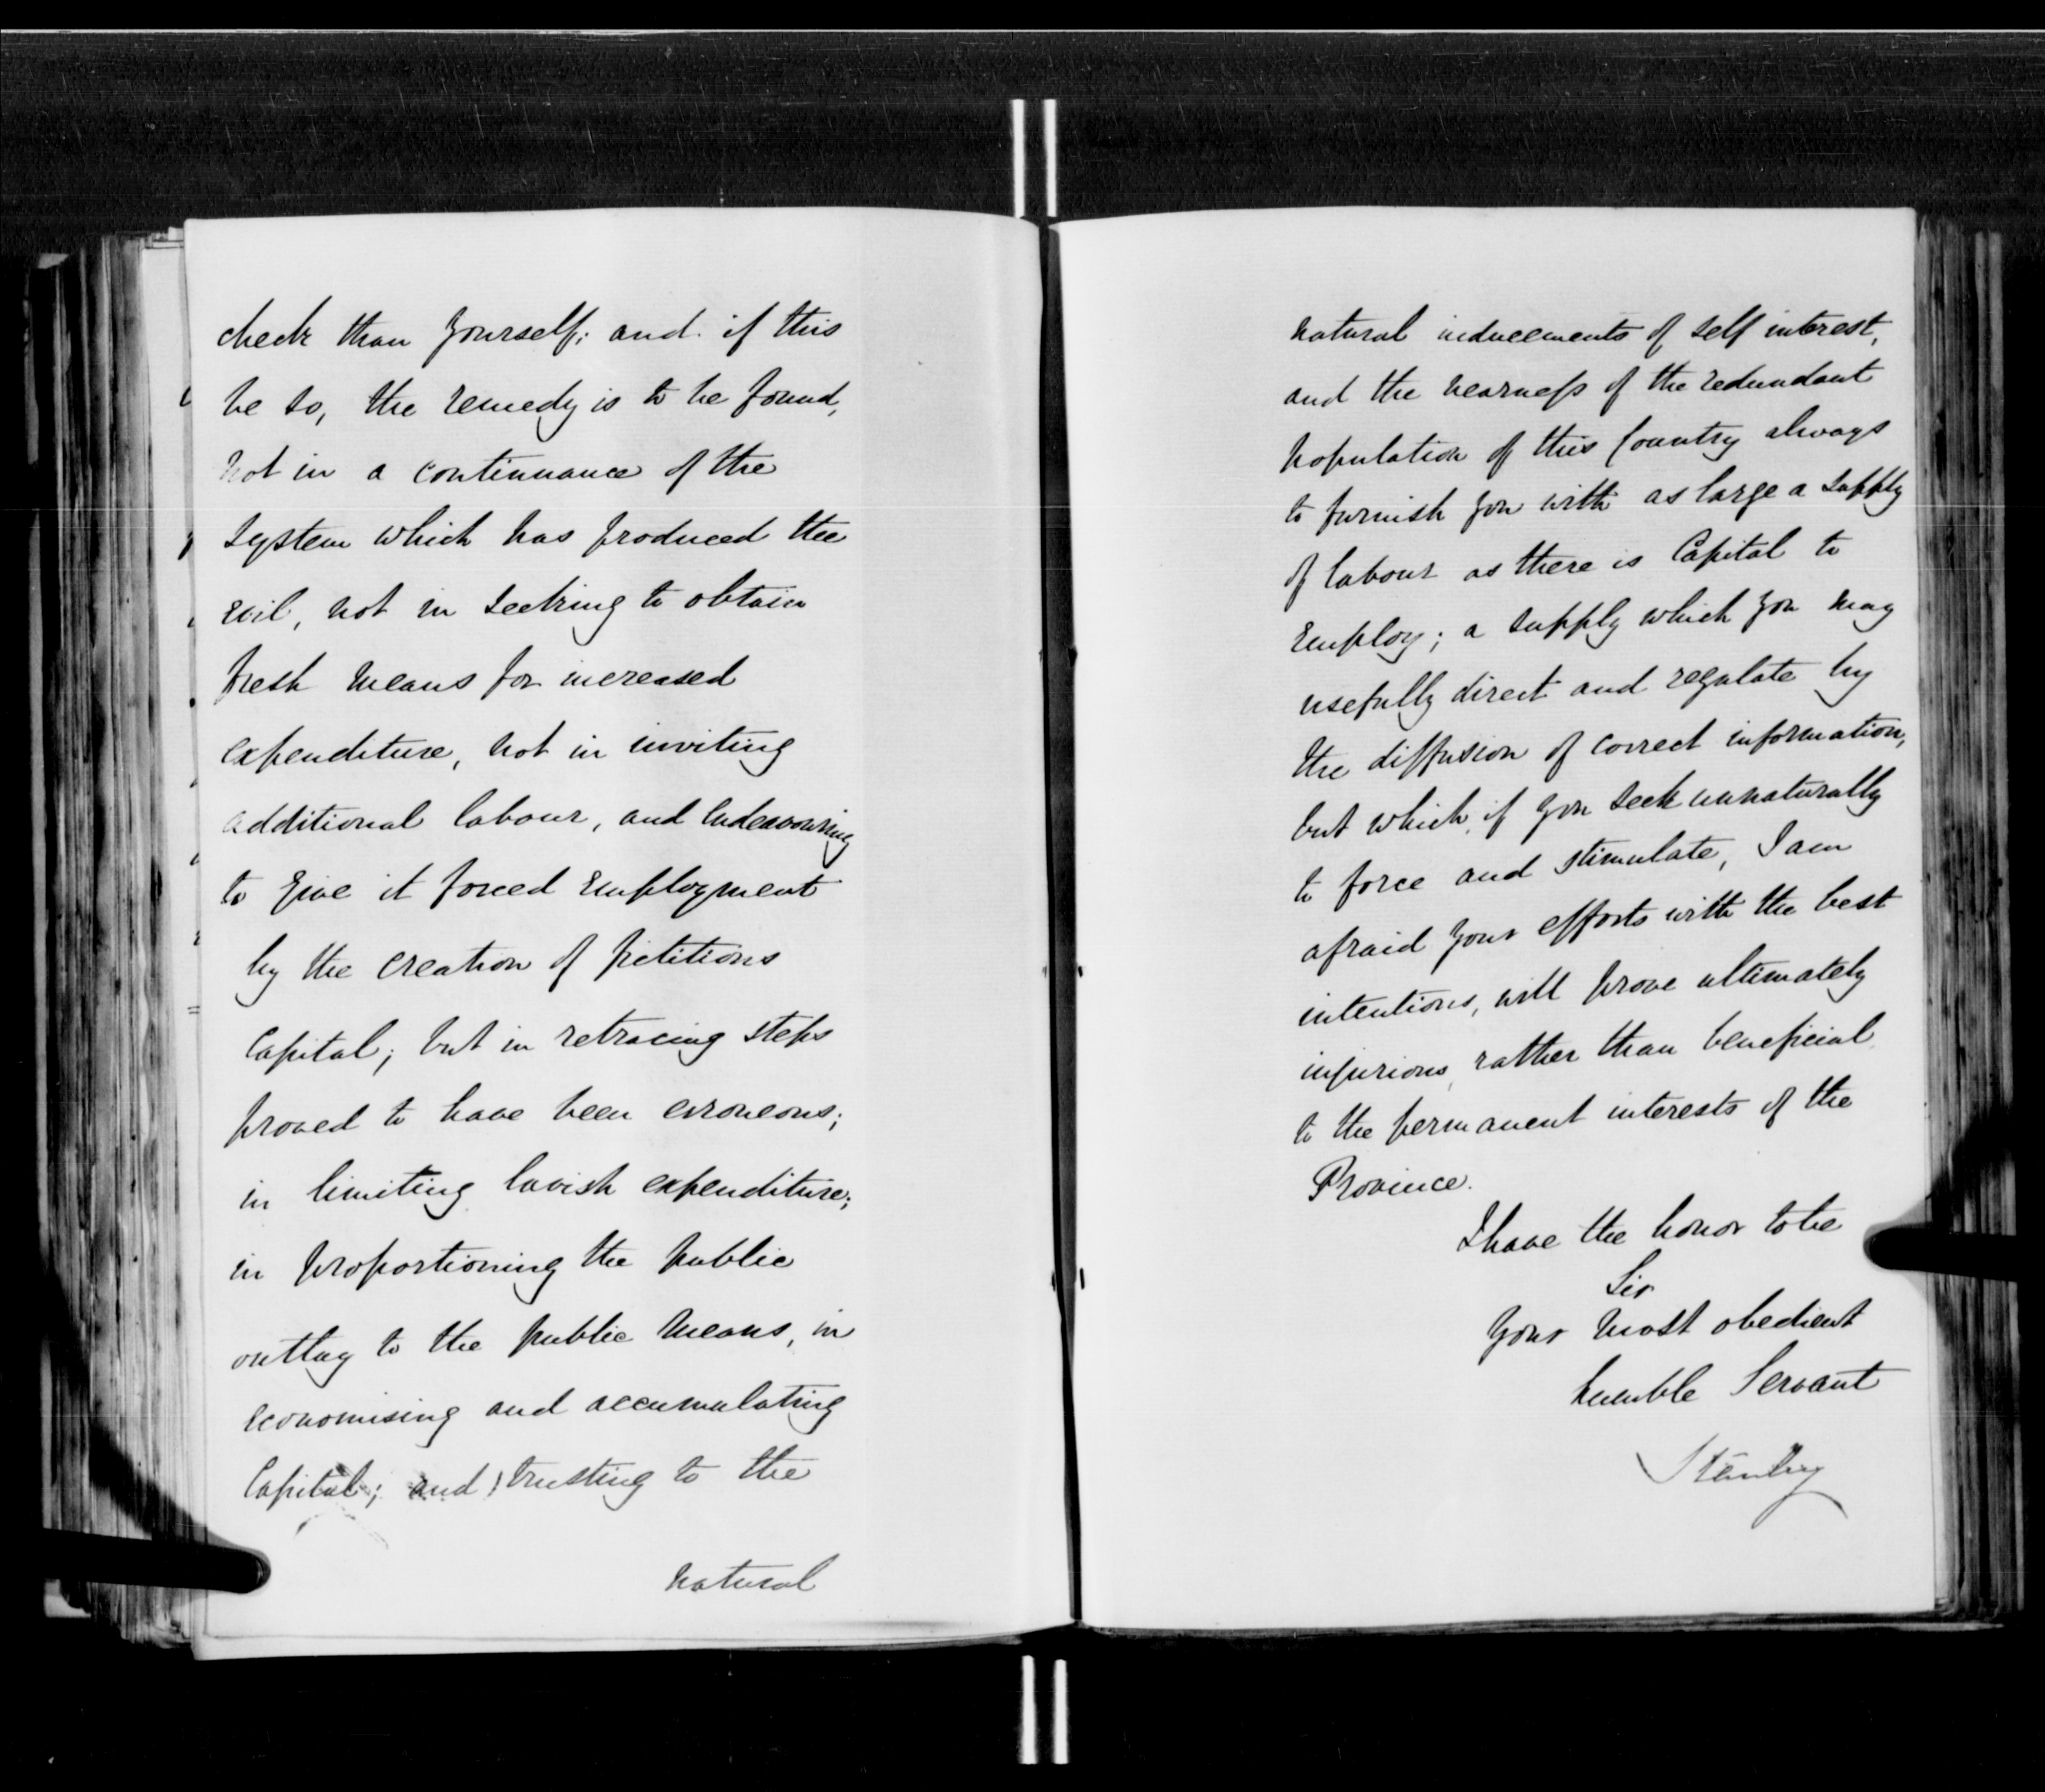 check than yourself; and if this
be so, the remedy is to be found,
not in a continuance of the
system which has produced the
evil, not in seeking to obtain
fresh means for increased
expenditure, not in inviting
additional labour, and endeavouring
to give it forced employment
by the creation of fictitious
Capital; but in retracing steps
proved to have been erroneous;
in limiting lavish expenditure;
in proportioning the public
outlay to the public means, in
economising and accumulating
Capital; and trusting to the
natural
natural inducements of self interest,
and the nearness of the redundant
population of this Country always
to furnish you with as large a supply
of labour as there is Capital to
employ; a supply which you may
usefully direct and regulate by
the diffusion of correct information,
but which, if you seek unnaturally
to force and stimulate, I am
afraid your efforts with the best
intentions, will prove ultimately
injurious, rather than beneficial
to the permanent interests of the
Province.
I have the honor to be
Sir
Your most obedient
humble Servant
Stanley